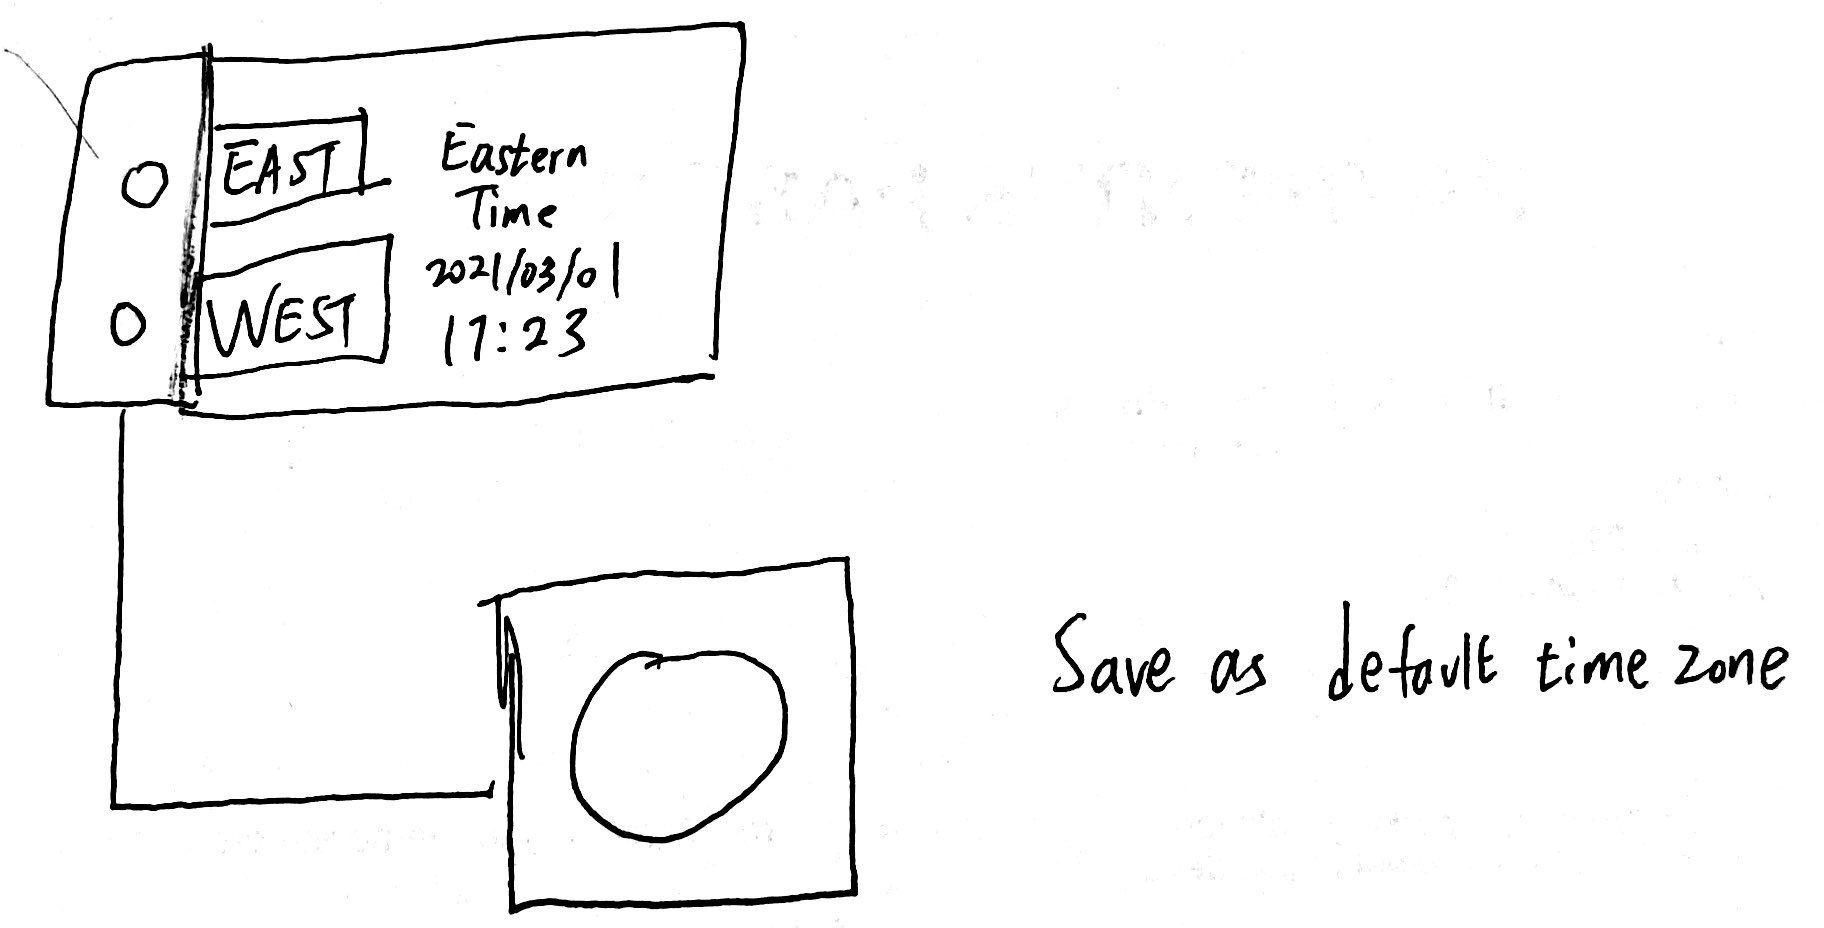 EAST
WEST
Eastern
Time
2021/03/01
17:23
Save as default time zone